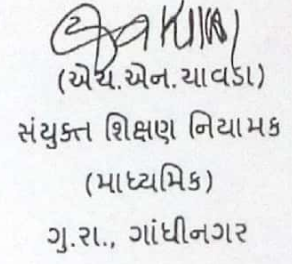 (એચ.એન.ચાવડા)
સંયુક્ત શિક્ષણ નિયામક
(માધ્યમિક)
ગુ.રા., ગાંધીનગર